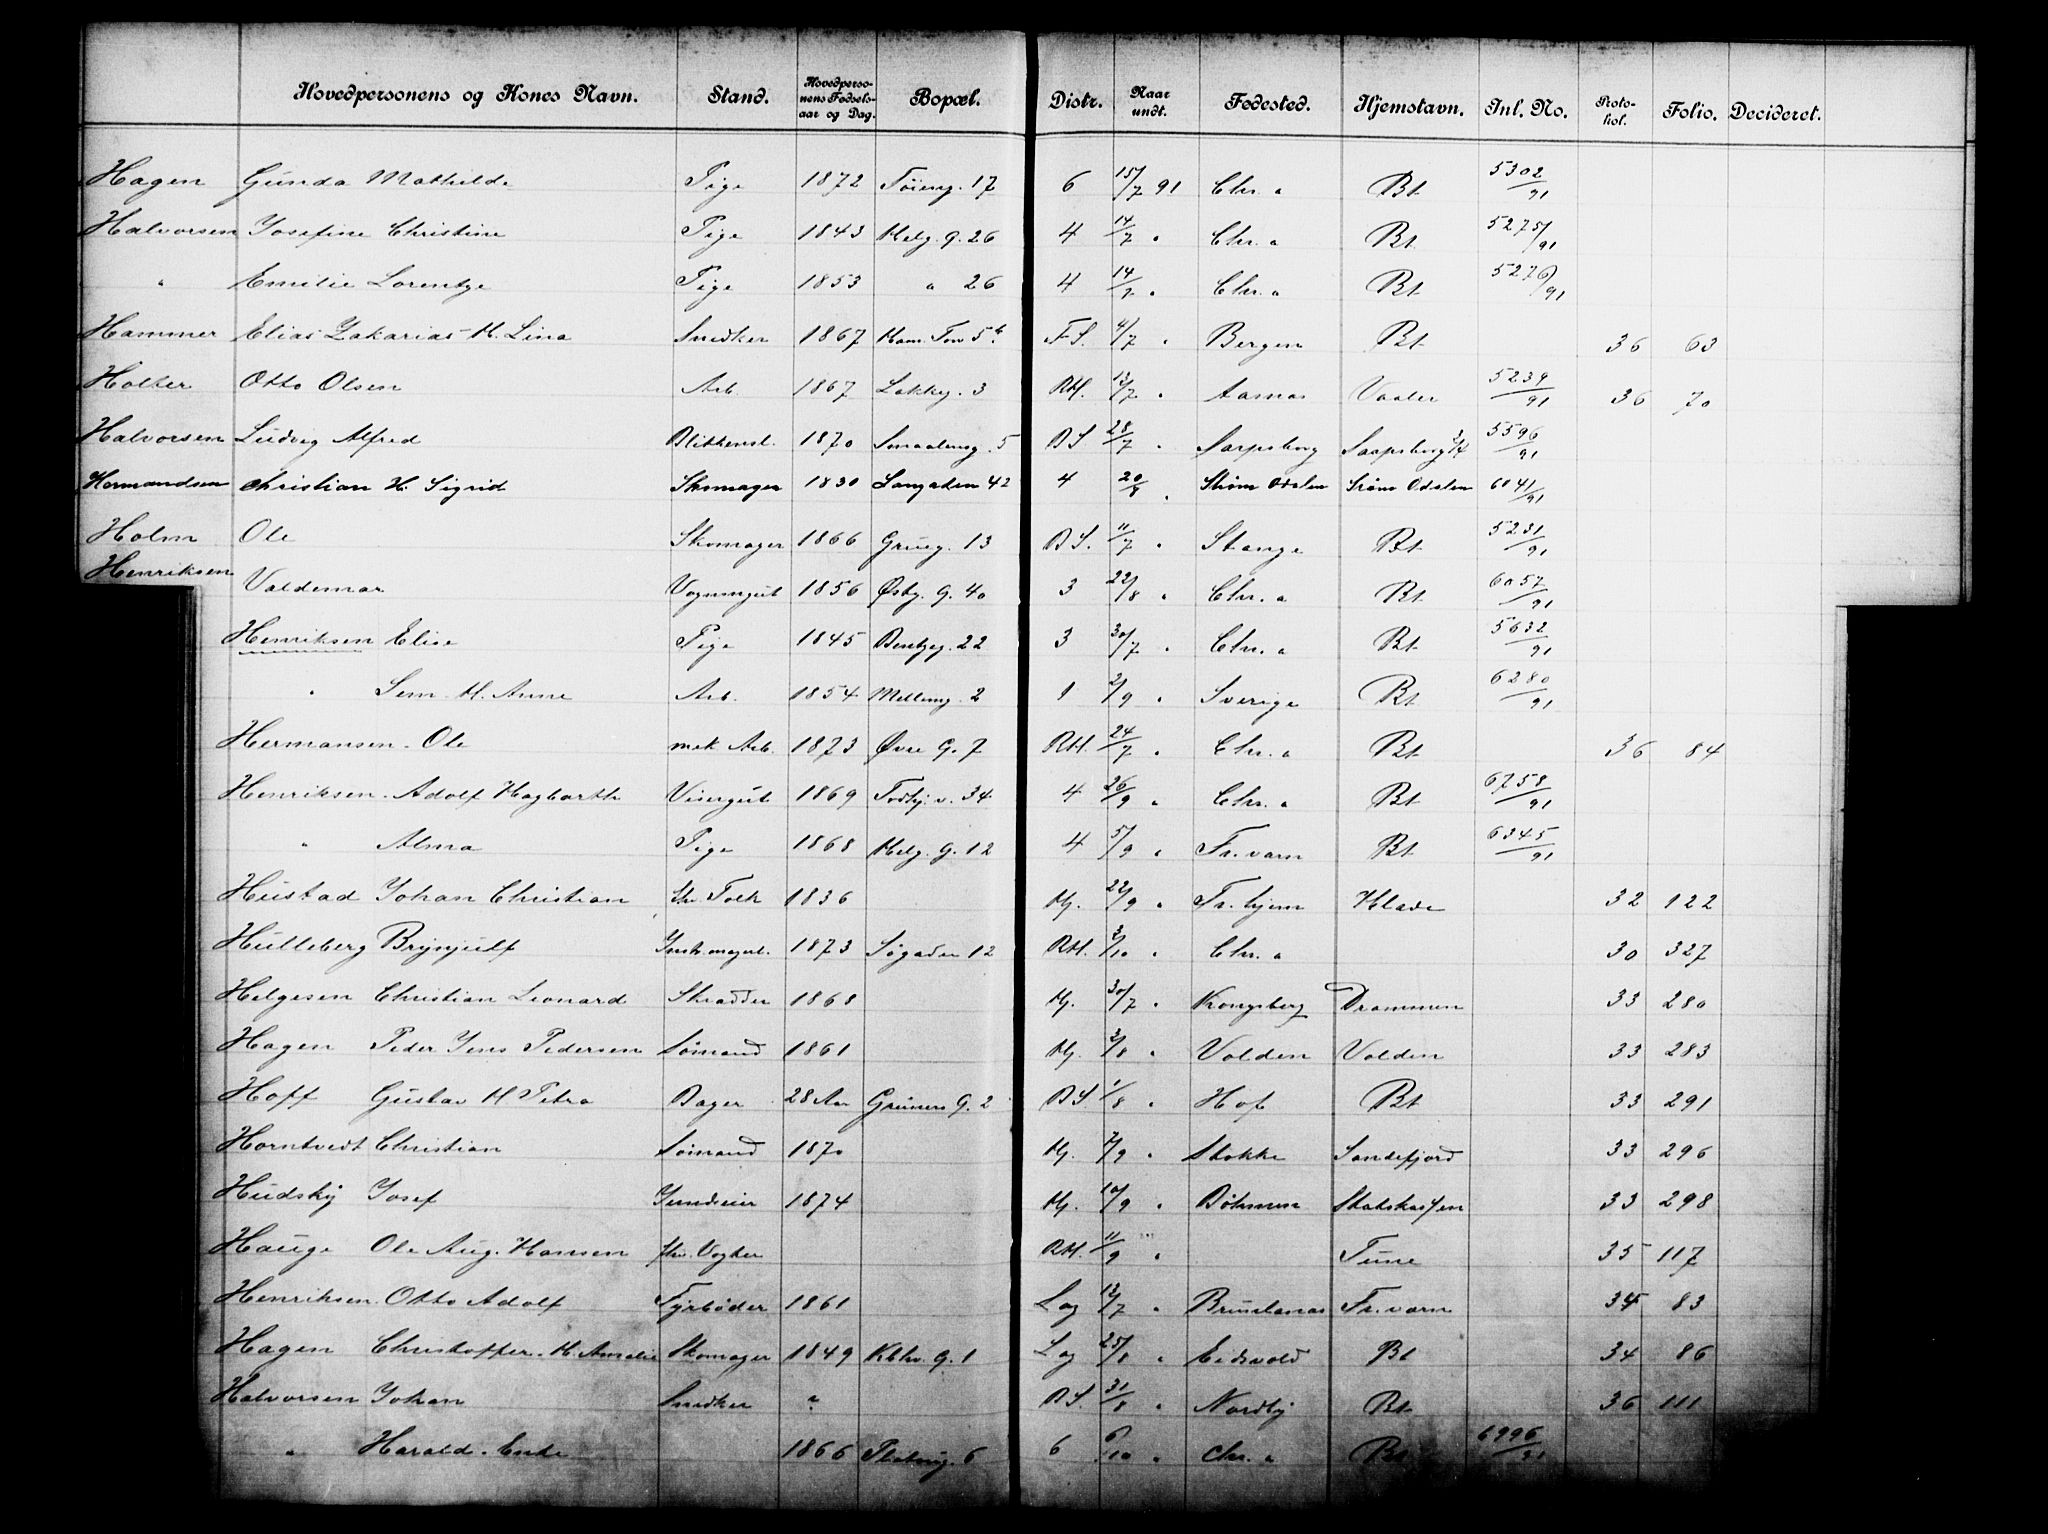 Hovedpersonens og Kones Navn. Stand. Hovedpersonens Fødselsaar og Dag. Bopæl. Distr. Naar undt. Fødested. Hjemstavn. Inl. No. Protokol. Folio. Decideret.
Hagen Gunda Mathilde Pige 1872 Tøieng. 17 6 15/7 91 Chr. a Bt 5302/91
Halvorsen Josefine Christine Pige 1843 Helg. g. 26 4 14/7 " Chr. a Bt 5275/91
" Emilie Lorentze Pige 1853 " 26 4 14/7 " Chr. a Bt 5276/91
Hammer Elias Zakarias H. Lina Snedker 1867 Ham. Tov 5b F.S. 4/7 " Bergen Bt 36 63
Holter Otto Olsen Arb. 1867 Lakkg. 3 RH. 13/7 " Aasnas Vaaler 5239/91 36 70
Halvorsen Ludvig Alfred Blikkensl. 1870 Smaaleng. 5 BS 28/7 " Sarpsborg Sarpsborg 5596/91
Hermandsen Christian H. Sigrid Skomager 1830 Langaden 42 4 20/8 " Strøm Odalen Strøm Odalen 6041/91
Holm Ole Skomager 1866 Grueg. 13 BS. 11/7 " Stange Bt 5231/91
Henriksen Valdemar Vognmgut 1856 Østg. g. 40 3 22/8 " Chr. a Bt 6057/91
Henriksen Elise Pige 1845 Bentzeg. 22 3 30/7 " Chr. a Bt 5632/91
" Sem H. Anne Arb. 1854 Mellemg. 2 1 2/9 " Sverige Bt 6280/91
Hermansen. Ole mek Arb. 1873 Øvre G. 7 RH. 24/7 " Chr. a Bt 36 84
Henriksen. Adolf Hagbarth Visergut 1869 Fossv. 34 4 26/9 " Chr. a Bt 6758/91
" Alma Pige 1868 Helg. g. 12 4 5/9 " Fr. værn Bt 6345/91
Hustad Johan Christian Skr. Tolk 1836 Hj. 22/9 " Tr. hjem Hlade 32 122
Hulleberg Brynjulf Instr. magerl. 1873 Søgaden 12 RH. 3/10 " Chr. a 30 327
Helgesen Christian Leonard Skrædder 1868 Hj. 30/7 " Kongsberg Drammen 33 280
Hagen Peder Jens Pedersen Sømand 1861 Hj. 3/8 " Volden Volden 33 283
Hoff Gustav H Petra Bager 28 Aar Grüners G. 2 BS. 1/8 " Hof Bt 33 291
Horntvedt Christian Sømand 1870 Hj. 7/9 " Stokke Sandefjord 33 296
Hudsky Josef 1874 Hj. 10/9 " Bøhmen Statskassen 33 298
Hauge Ole Aug. Hansen fhv. Vogter RH. 11/9 " Tune 35 117
Henriksen. Otto Adolf Fyrbøder 1861 Log 13/7 " Brunlanas Fr. værn 34 83
Hagen Christoffer. H. Amalie Skomager 1849 Kbhv. G. 1 Log 25/8 " Eidsvold Bt 34 86
Halvorsen Johan Snedker " BS. 31/8 " Nordby Bt 36 111
" Harald. Enke 1866 6 6/10 " Chr. a Bt 6996/91